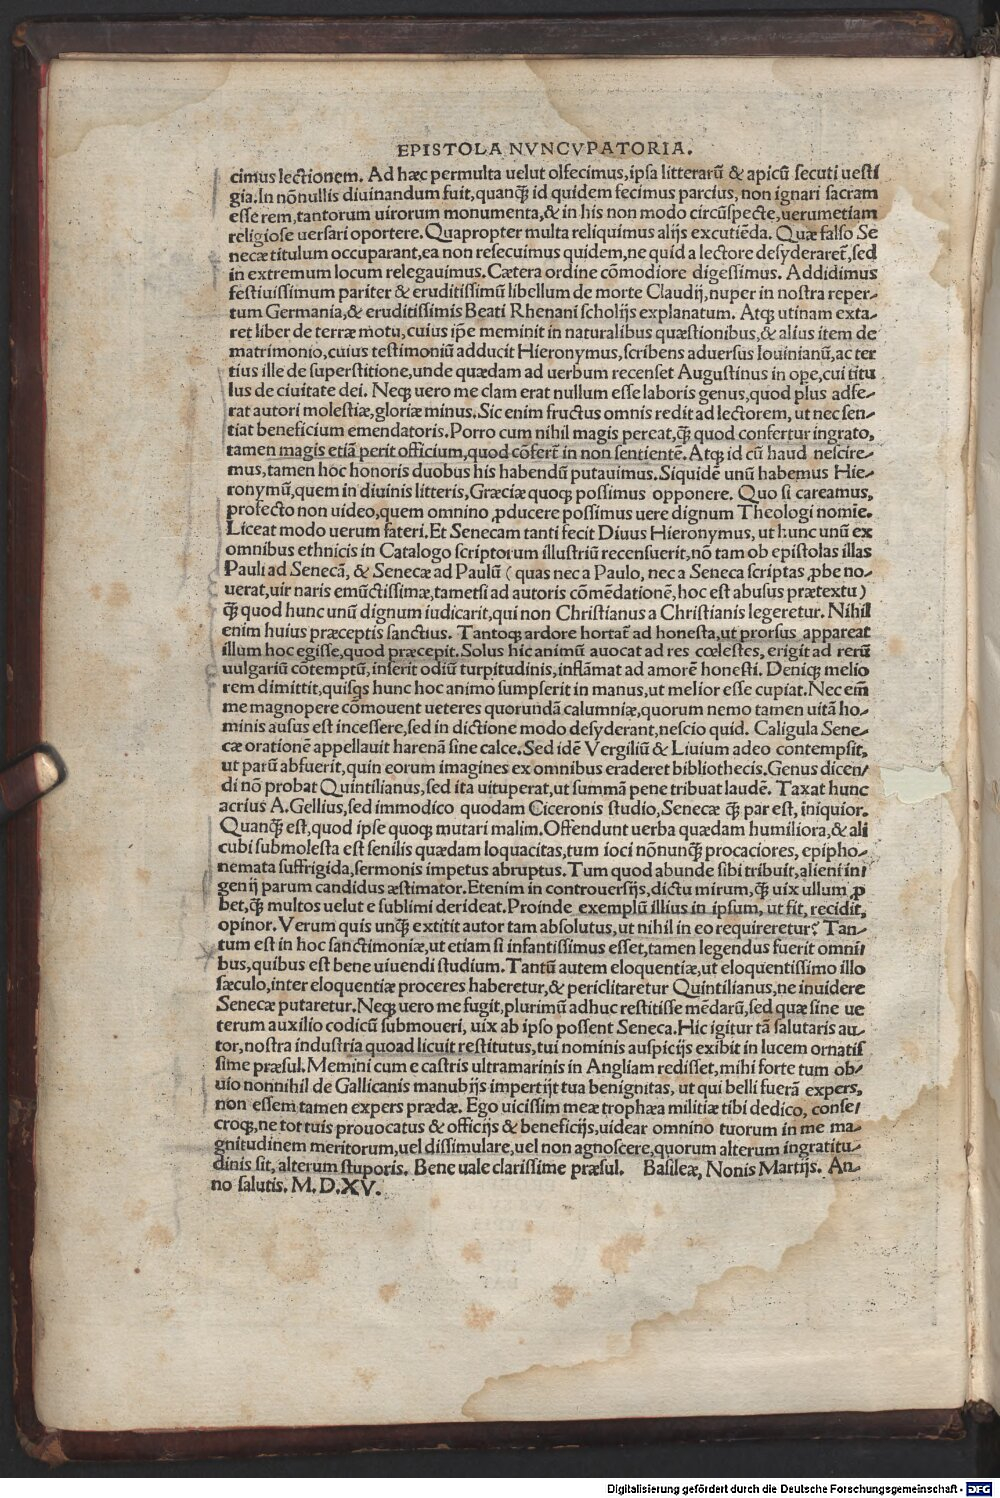 EPISTOLA NVNCVPATORIA.
cimus lectionem. Ad hæc permulta uelut olfecimus, ipsa litterarũ & apicũ secuti uesti
gia. In nõnullis diuinandum fuit, quanꝗ̃ id quidem fecimus parcius, non ignari sacram
esse rem, tantorum uirorum monumenta, & in his non modo circũspecte, uerumetiam
religiose uersari oportere. Quapropter multa reliquimus alijs excutiẽda. Quæ falso Se
necæ titulum occuparant, ea non resecuimus quidem, ne quid a lectore desyderaret̃, sed
in extremum locum relegauimus. Cætera ordine cõmodiore digessimus. Addidimus
festiuissimum pariter & eruditissimũ libellum de morte Claudij, nuper in nostra reper-
tum Germania, & eruditissimis Beati Rhenani scholijs explanatum. Atq; utinam exta-
ret liber de terræ motu, cuius ip̃e meminit in naturalibus quæstionibus, & alius item de
matrimonio, cuius testimoniũ adducit Hieronymus, scribens aduersus Iouinianũ, ac ter
tius ille de superstitione, unde quædam ad uerbum recenset Augustinus in ope, cui titu
lus de ciuitate dei. Neq; uero me clam erat nullum esse laboris genus, quod plus adfe-
rat autori molestiæ, gloriæ minus. Sic enim fructus omnis redit ad lectorem, ut nec sen-
tiat beneficium emendatoris. Porro cum nihil magis pereat, ꝗ̃ quod confertur ingrato,
tamen magis etiã perit officium, quod cõfert̃ in non sentientẽ. Atq; id cũ haud nescire-
mus, tamen hoc honoris duobus his habendũ putauimus. Siquidẽ unũ habemus Hie-
ronymũ, quem in diuinis litteris, Græciæ quoq; possimus opponere. Quo si careamus,
profecto non uideo, quem omnino ꝓducere possimus uere dignum Theologi nomĩe.
Liceat modo uerum fateri. Et Senecam tanti fecit Diuus Hieronymus, ut hunc unũ ex
omnibus ethnicis in Catalogo scriptorum illustriũ recensuerit, nõ tam ob epistolas illas
Pauli ad Senecã, & Senecæ ad Paulũ ( quas nec a Paulo, nec a Seneca scriptas ꝓbe no-
uerat, uir naris emũctissimæ, tametsi ad autoris cõmẽdationẽ, hoc est abusus prætextu )
ꝗ̃ quod hunc unũ dignum iudicarit, qui non Christianus a Christianis legeretur. Nihil
enim huius præceptis sanctius. Tantoq; ardore hortat̃ ad honesta, ut prorsus appareat
illum hoc egisse, quod præcepit. Solus hic animũ auocat ad res cœlestes, erigit ad rerũ
uulgariũ cõtemptũ, inserit odiũ turpitudinis, inflãmat ad amorẽ honesti. Deniq; melio
rem dimittit, quisꝗs hunc hoc animo sumpserit in manus, ut melior esse cupiat. Nec eim̃
me magnopere cõmouent ueteres quorundã calumniæ, quorum nemo tamen uitã ho-
minis ausus est incessere, sed in dictione modo desyderant, nescio quid. Caligula Sene-
cæ orationẽ appellauit harenã sine calce. Sed idẽ Vergiliũ & Liuium adeo contempsit,
ut parũ abfuerit, quin eorum imagines ex omnibus eraderet bibliothecis. Genus dicen-
di nõ probat Quintilianus, sed ita uituperat, ut summã pene tribuat laudẽ. Taxat hunc
acrius A. Gellius, sed immodico quodam Ciceronis studio, Senecæ ꝗ̃ par est, iniquior.
Quanꝗ̃ est, quod ipse quoq; mutari malim. Offendunt uerba quædam humiliora, & ali
cubi submolesta est senilis quædam loquacitas, tum ioci nõnunꝗ̃ procaciores, epipho-
nemata suffrigida, sermonis impetus abruptus. Tum quod abunde sibi tribuit, alieni in-
genij parum candidus æstimator. Etenim in controuersijs, dictu mirum, ꝗ̃ uix ullum ꝓ
bet, ꝗ̃ multos uelut e sublimi derideat. Proinde exemplũ illius in ipsum, ut fit, recidit,
opinor. Verum quis unꝗ̃ extitit autor tam absolutus, ut nihil in eo requireretur? Tan-
tum est in hoc sanctimoniæ, ut etiam si infantissimus esset, tamen legendus fuerit omni-
bus, quibus est bene uiuendi studium. Tantũ autem eloquentiæ, ut eloquentissimo illo
sæculo, inter eloquentiæ proceres haberetur, & periclitaretur Quintilianus, ne inuidere
Senecæ putaretur. Neq; uero me fugit, plurimũ adhuc restitisse mẽdarũ, sed quæ sine ue
terum auxilio codicũ submoueri, uix ab ipso possent Seneca. Hic igitur tã salutaris au-
tor, nostra industria quoad licuit restitutus, tui nominis auspicijs exibit in lucem ornatis
sime præsul. Memini cum e castris ultramarinis in Angliam redisset, mihi forte tum ob-
uio nonnihil de Gallicanis manubijs impertijt tua benignitas, ut qui belli fuerã expers,
non essem tamen expers prædæ. Ego uicissim meæ trophæa militiæ tibi dedico, conse-
croq;, ne tot tuis prouocatus & officijs & beneficijs, uidear omnino tuorum in me ma-
gnitudinem meritorum, uel dissimulare, uel non agnoscere, quorum alterum ingratitu-
dinis sit, alterum stuporis. Bene uale clarissime præsul. Basileæ, Nonis Martijs. An-
no salutis. M.D.XV.
Digitalisierung gefördert durch die Deutsche Forschungsgemeinschaft - DFG